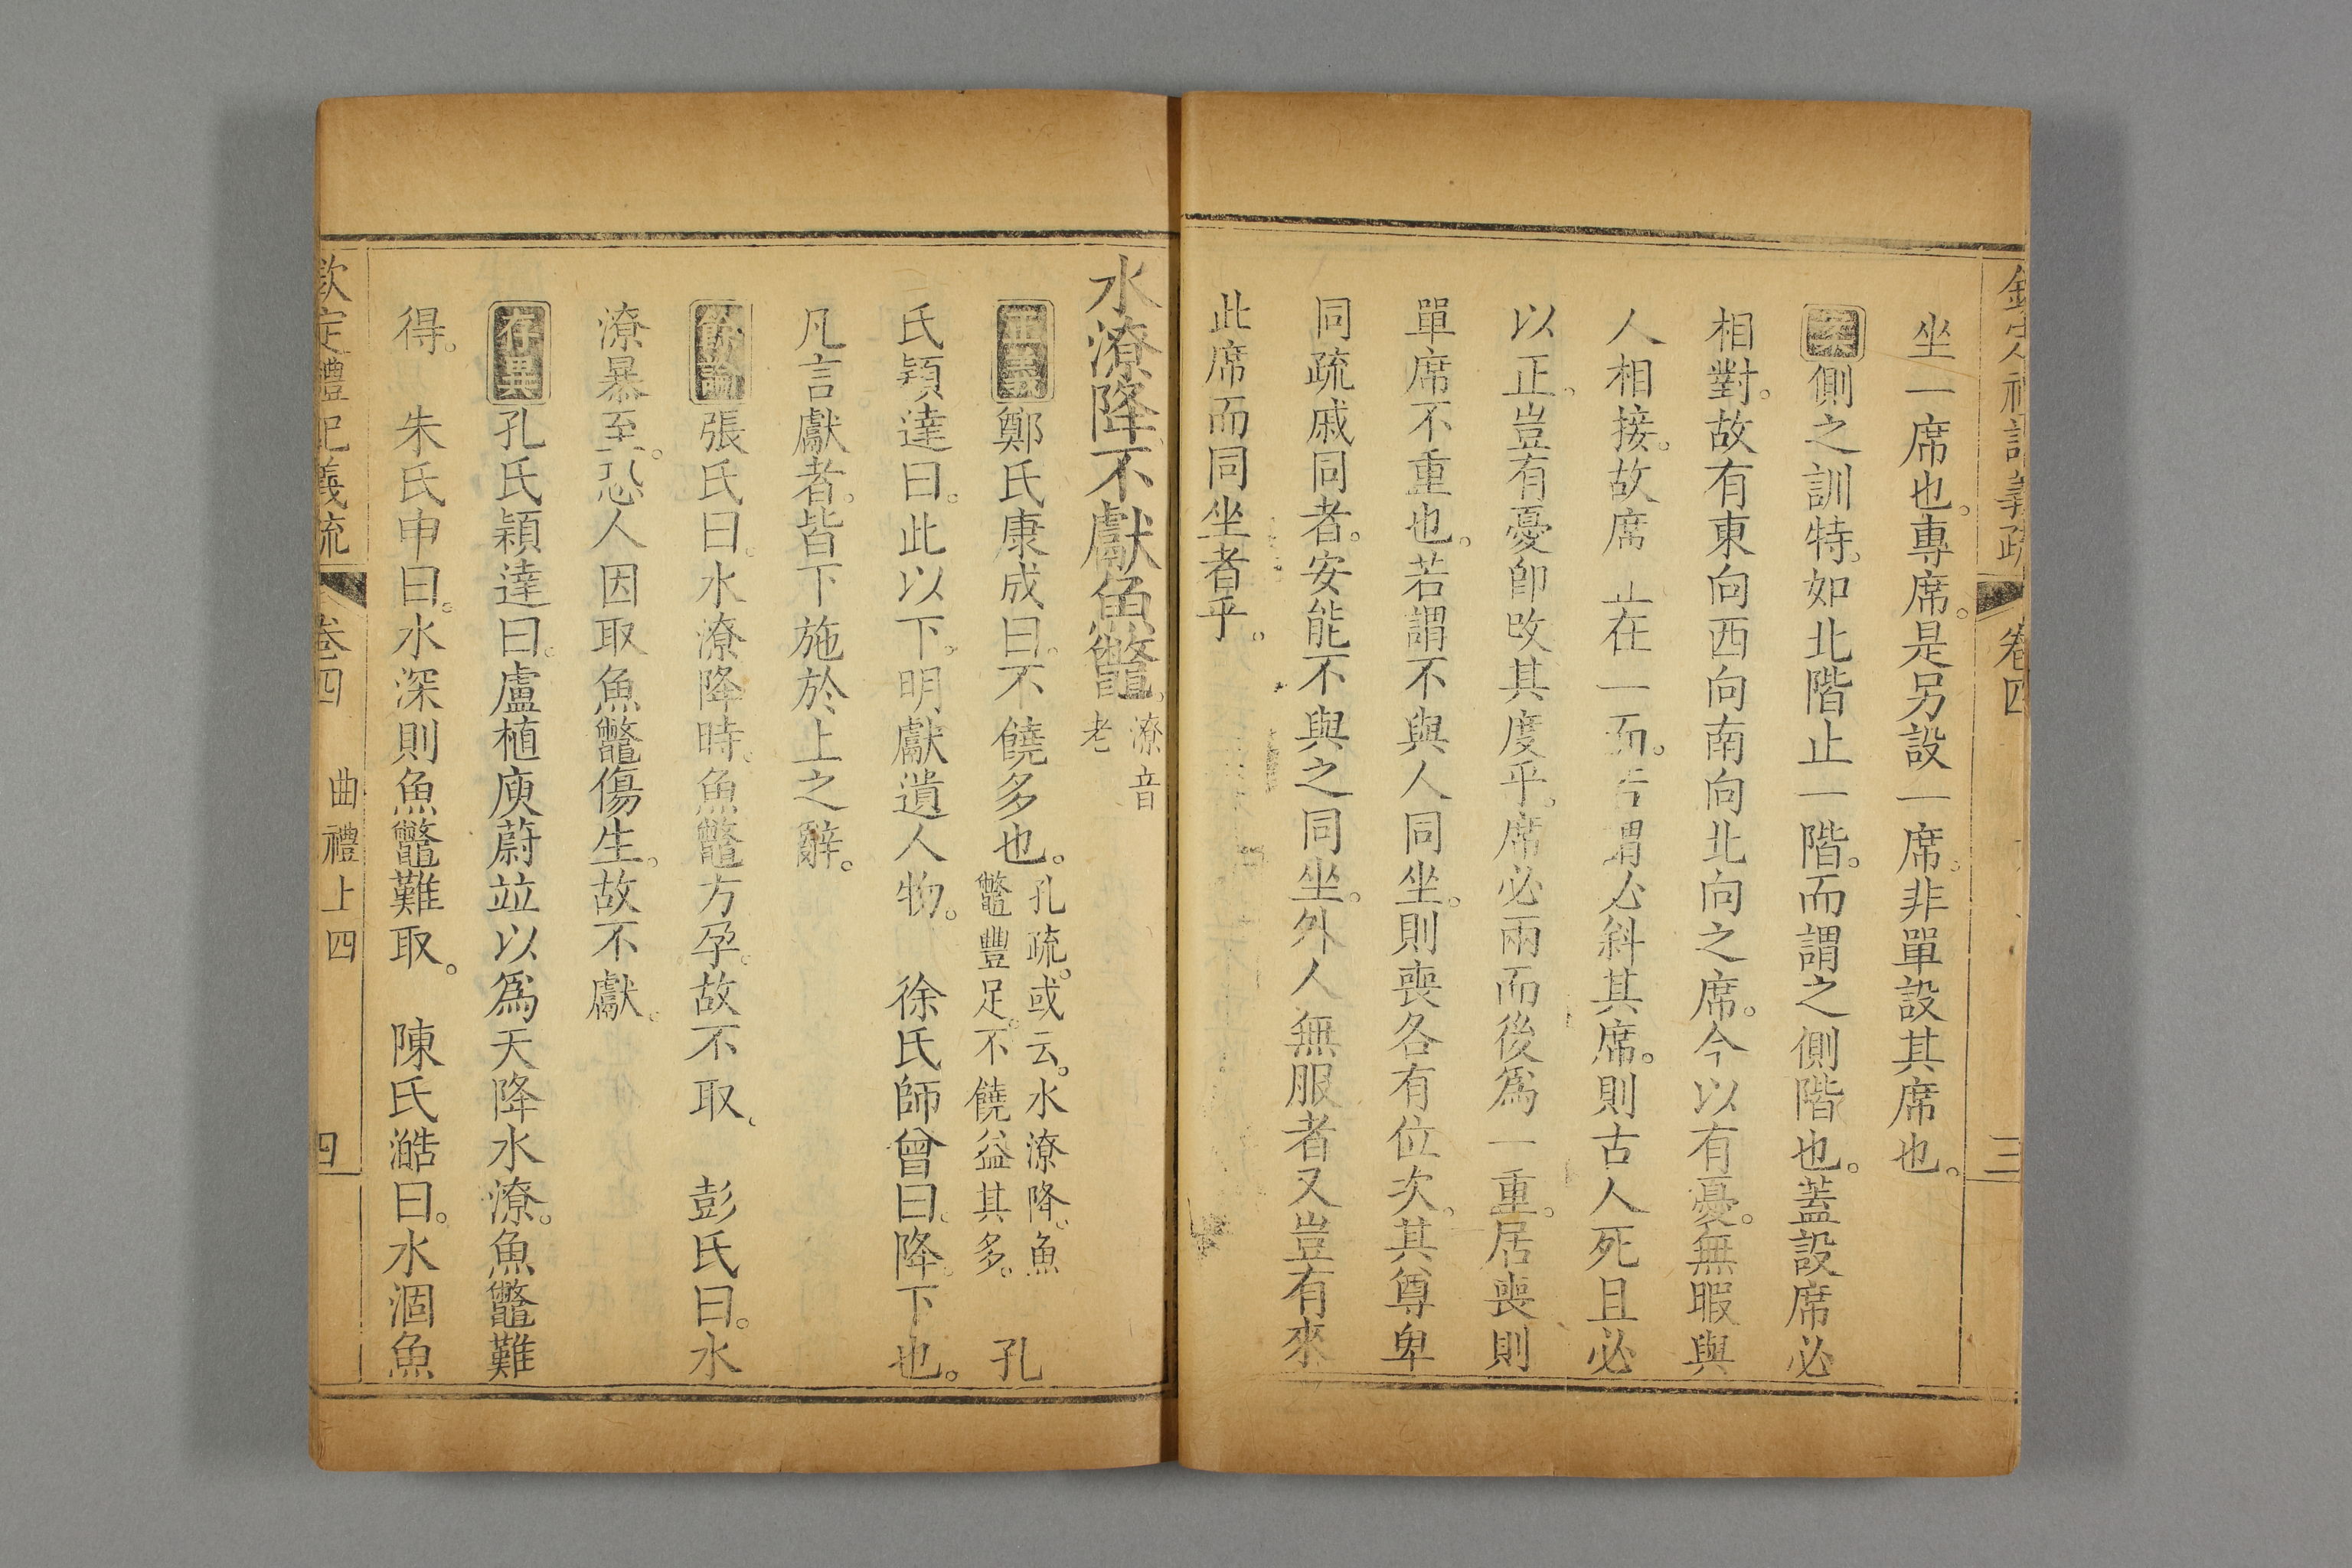 欽定禮記義疏 卷四 三
坐一席也。專席。是另設一席。非單設其席也。
案側之訓特。如北階止一階。而謂之側階也。蓋設席必
相對。故有東向西向南向北向之席。今以有憂。無暇與
人相接。故席止在一面。若謂必斜其席。則古人死且必
以正。豈有憂卽改其度乎。席必兩而後爲一重。居喪則
單席不重也。若謂不與人同坐。則喪各有位次。其尊卑
同疏戚同者。安能不與之同坐。外人無服者又豈有來
此席而同坐者乎。
水潦降不獻魚鼈。潦音老
正義鄭氏康成曰。不饒多也。孔疏。或云。水潦降。魚鼈豐足。不饒益其多。 孔
氏穎達曰。此以下。明獻遺人物。 徐氏師曾曰。降。下也。
凡言獻者。皆下施於上之辭。
餘論張氏曰。水潦降時。魚鼈方孕。故不取。 彭氏曰。水
潦暴至。恐人因取魚鼈傷生。故不獻。
存異孔氏穎達曰。盧植庾蔚竝以爲天降水潦。魚鼈難
得。 朱氏申曰。水深則魚鼈難取。 陳氏澔曰。水涸魚
欽定禮記義疏 卷四 曲禮上四 四